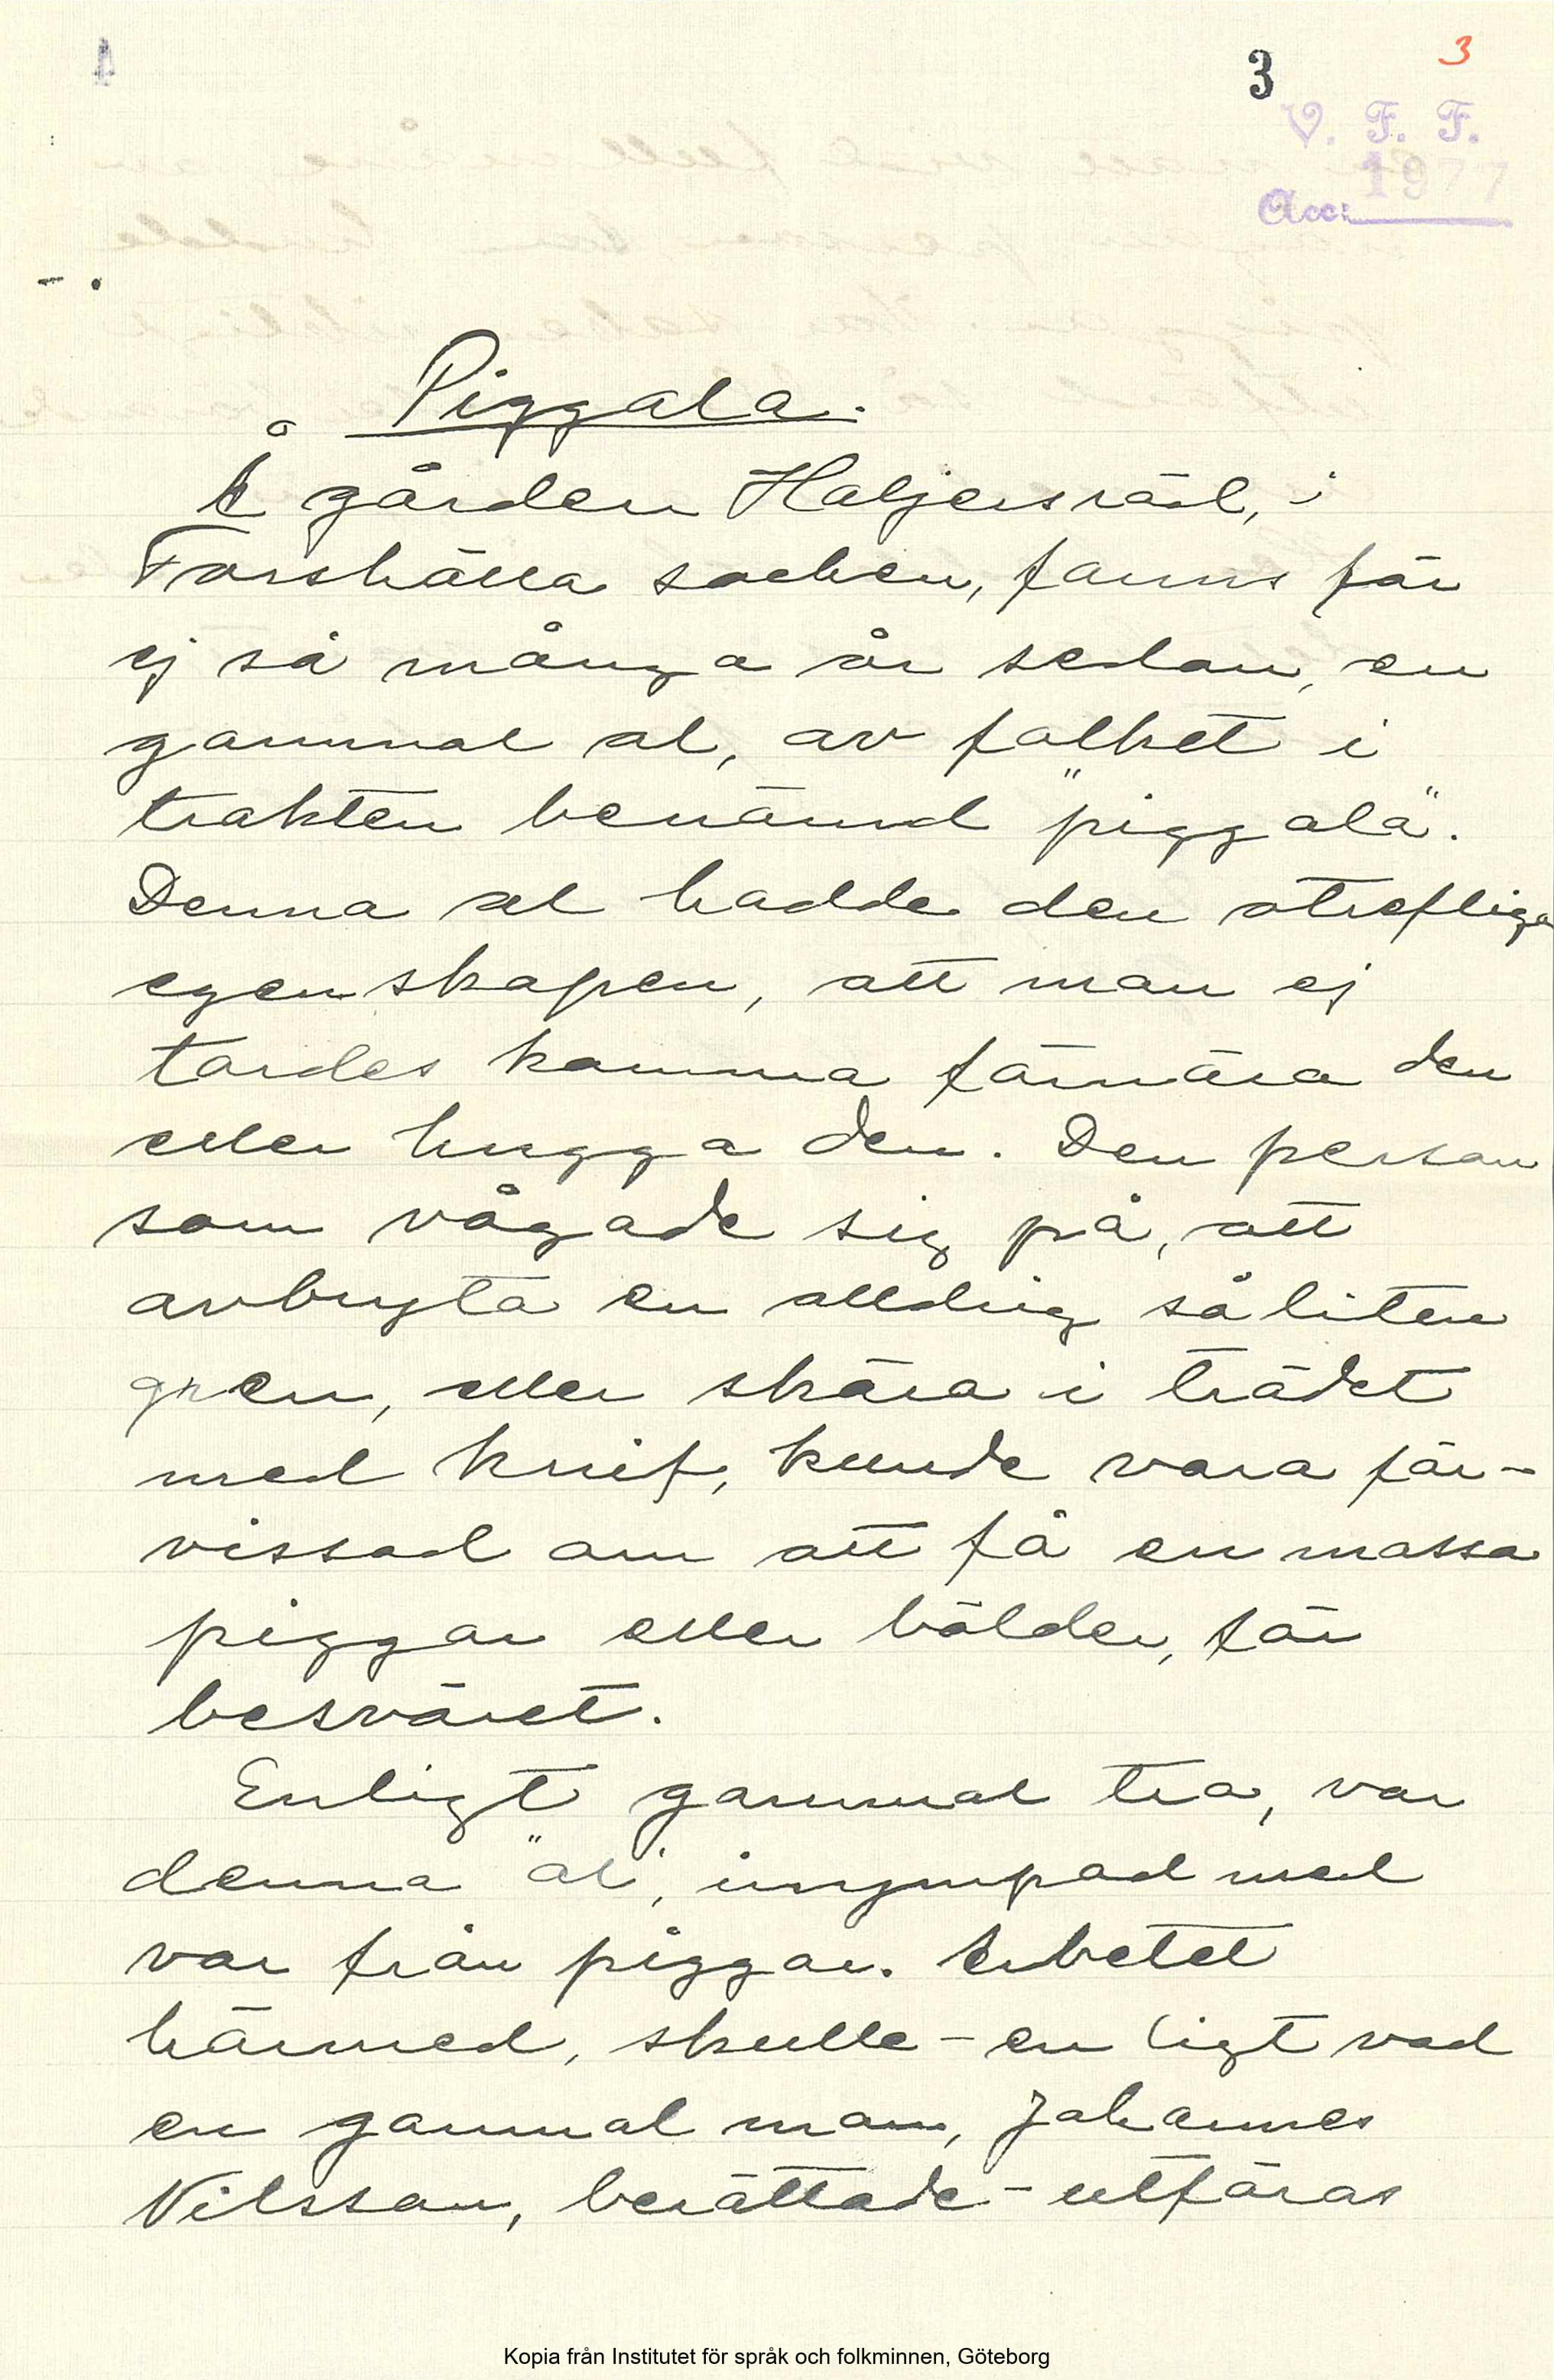 3 3
V. F. F.
1977
Acc:
Piggala.
Å gården Haljersröd, i
Forshälla socken, fanns för
ej så många år sedan, en
gammal al, av folket i
trakten benämnd "piggala".
Denna al hadde den otrefliga
egenskapen, att man ej
tordes komma förnära den
eller hugga den. Den person
som vågade sig på, att
avbryta en alldrig så liten
gren, eller skära i trädet
med knif, kunde vara för-
vissad om att få en massa
piggar eller bölder, för
besväret.
Enligt gammal tro, var
denna "al", inympad med
var från piggar. Arbetet
härmed, skulle - enligt vad
en gammal man, Johannes
Nilsson, berättade - utföras
Kopia från Institutet för språk och folkminnen, Göteborg